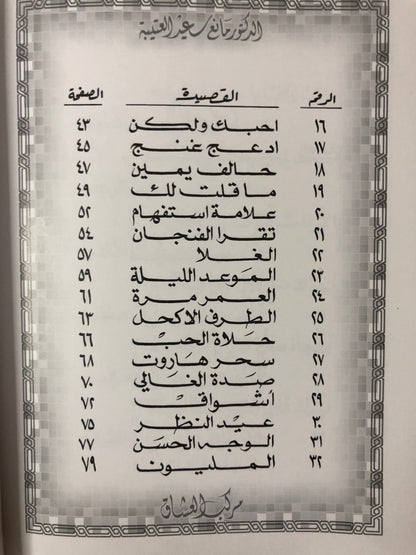 الدكتور مانع سعيد العتيبة
الرقم القصيدة الصفحة
١٦ احبك ولكن ٤٣
١٧ ادعج غنج ٤٥
١٨ حالف يمين ٤٧
١٩ ما قلت لك ٤٩
٢٠ علامة استفهام ٥٢
٢١ تقرا الفنجان ٥٤
٢٢ الغلا ٥٧
٢٣ الموعد الليلة ٥٩
٢٤ العمر مرة ٦١
٢٥ الطرف الاكحل ٦٣
٢٦ حلاة الحب ٦٦
٢٧ سحر هاروت ٦٨
٢٨ صدة الغالي ٧٠
٢٩ أشواق ٧٢
٣٠ عيد النظر ٧٥
٣١ الوجه الحسن ٧٧
٣٢ المليون ٧٩
مركب العشاق